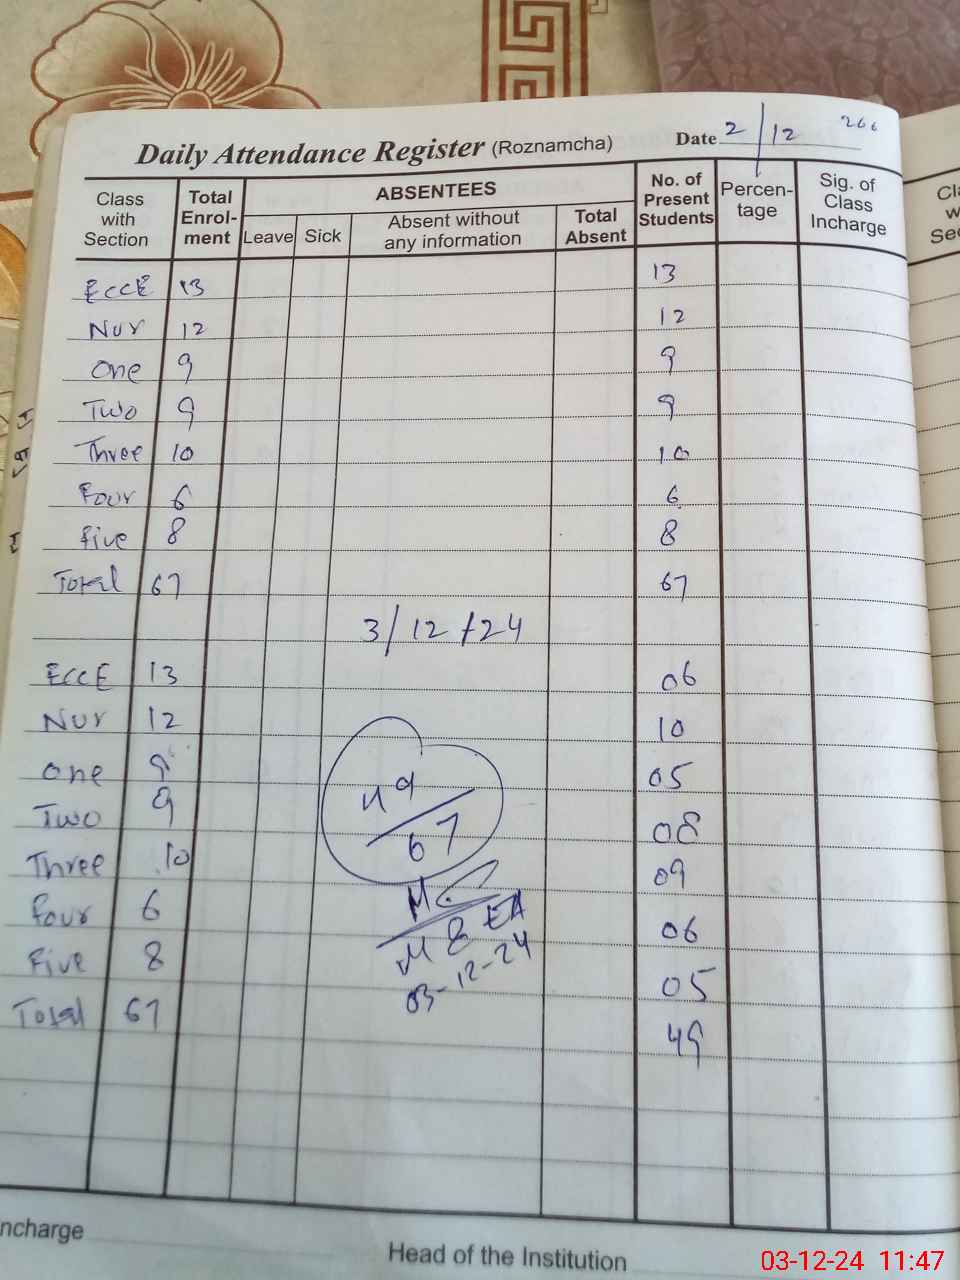 Daily Attendance Register (Roznamcha) Date 2/12 266
Class with Section Total Enrol-ment ABSENTEES Leave Sick Absent without any information Total Absent No. of Present Students Percen-tage Sig. of Class Incharge
ECCE 13 13
Nur 12 12
One 9 9
Two 9 9
Three 10 10
Four 6 6
Five 8 8
Total 67 67
3/12/24
ECCE 13 06
Nur 12 10
One 9 05
Two 9 08
49/67
Three 10 09
Four 6 06
M & EA
Five 8 05
03-12-24
Total 67 49
ncharge
Head of the Institution
03-12-24 11:47